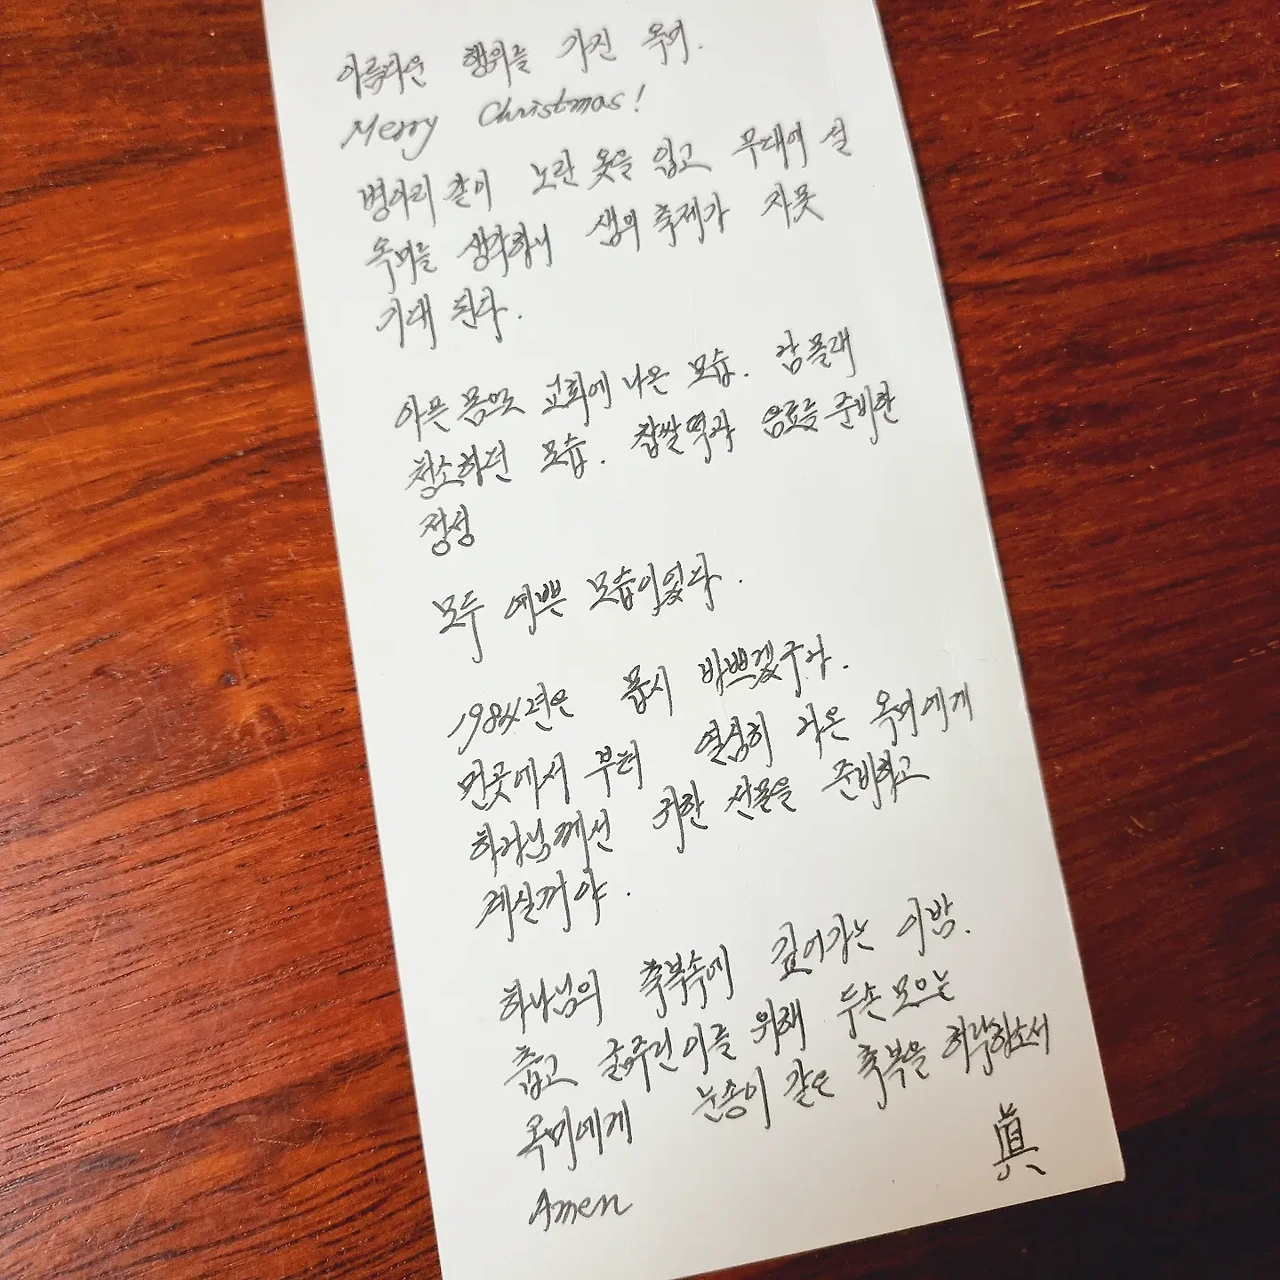 아름다운 행위를 가진 옥미.
Merry Christmas!
병아리 같이 노란 옷을 입고 무대에 설
옥미를 생각하니 생의 축제가 자못
기대 된다.
아픈 몸으로 교회에 나온 모습. 남 몰래
청소하던 모습. 찹쌀떡과 음료를 준비한
정성
모두 예쁜 모습이었다.
1984년은 몹시 바쁘겠구나.
먼곳에서 부터 열심히 나온 옥미에게
하나님께선 귀한 선물을 준비하고
계실꺼야.
하나님의 축복속에 깊어가는 이밤.
춥고 굶주린 이를 위해 두손 모으는
옥미에게 눈송이 같은 축복을 허락하소서
Amen 眞